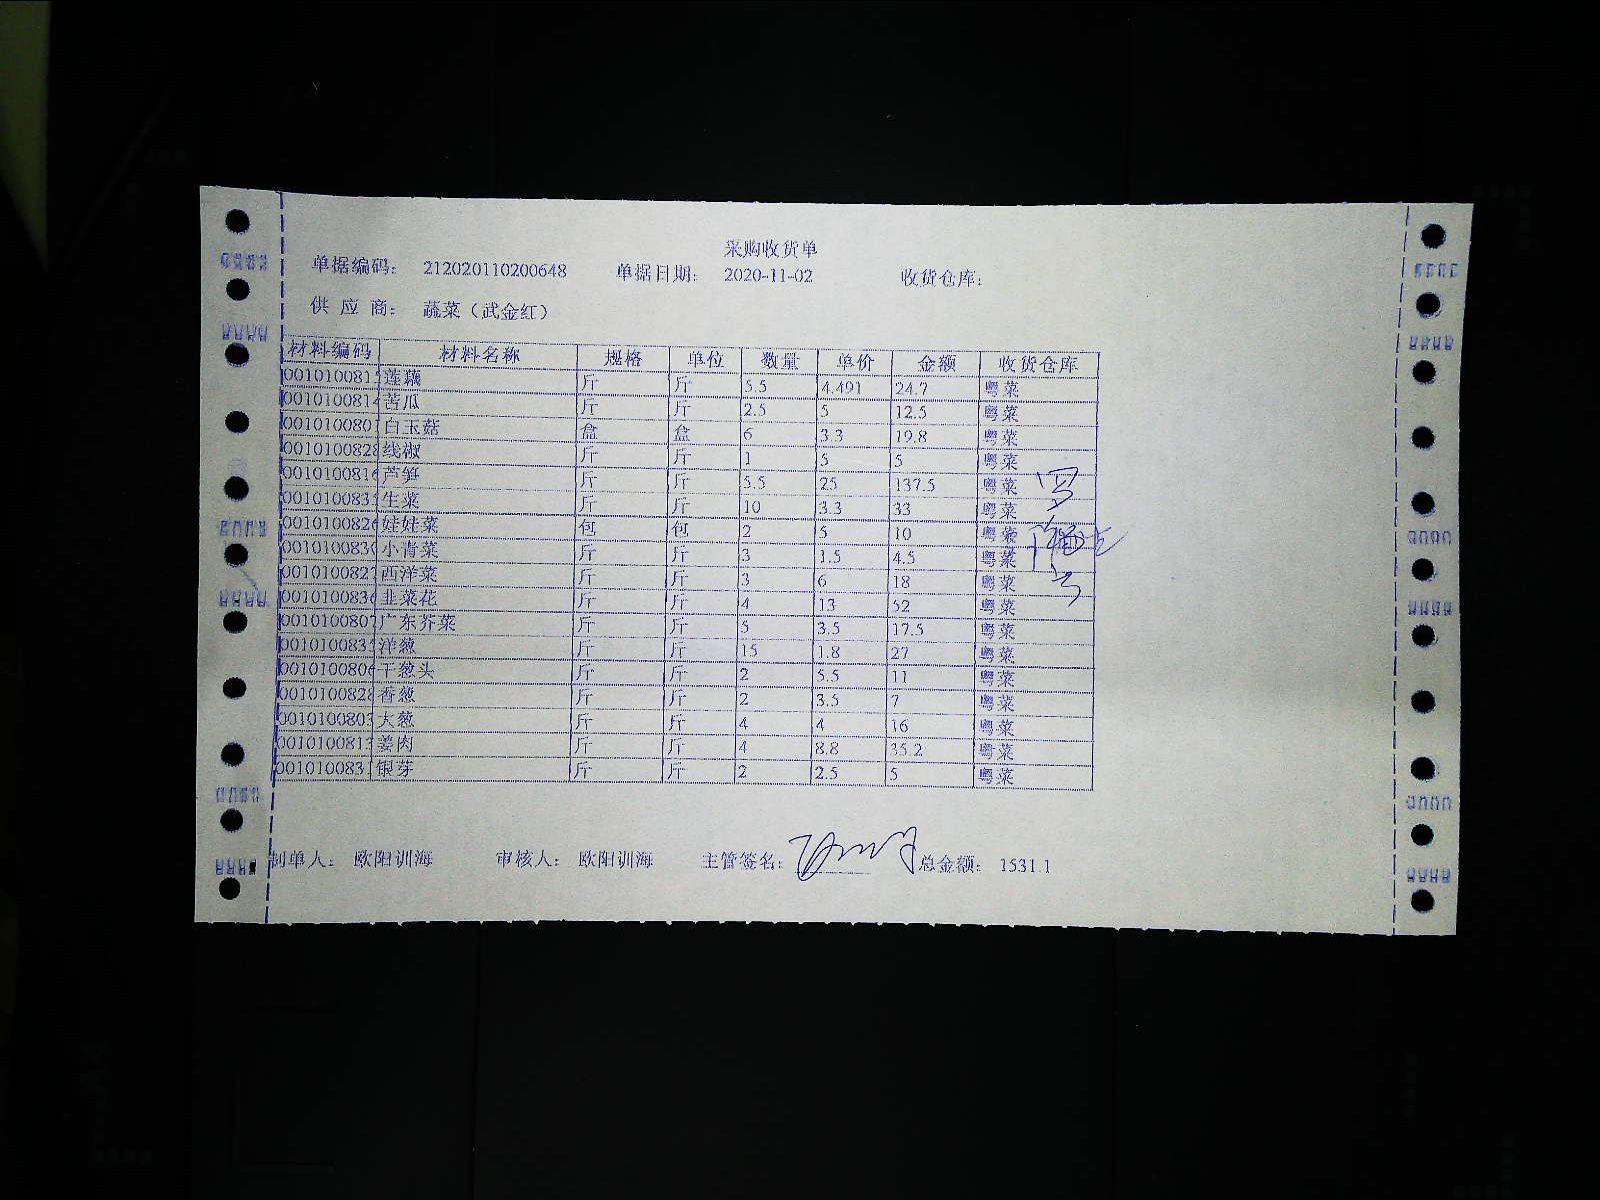 采购收货单
单据编码： 212020110200648 单据日期： 2020-11-02 收货仓库：
供 应 商： 蔬菜（武金红）
材料编码 材料名称 规格 单位 数量 单价 金额 收货仓库
001010081 莲藕 斤 斤 5.5 4.491 24.7 粤菜
0010100814 苦瓜 斤 斤 2.5 5 12.5 粤菜
0010100801 白玉菇 盒 盒 6 3.3 19.8 粤菜
0010100828 线椒 斤 斤 1 5 5 粤菜
0010100816 芦笋 斤 斤 5.5 25 137.5 粤菜
001010083 生菜 斤 斤 10 3.3 33 粤菜
0010100826 娃娃菜 包 包 2 5 10 粤菜
001010083 小青菜 斤 斤 3 1.5 4.5 粤菜
0010100827 西洋菜 斤 斤 3 6 18 粤菜
0010100836 韭菜花 斤 斤 4 13 52 粤菜
0010100807 广东芥菜 斤 斤 5 3.5 17.5 粤菜
001010083 洋葱 斤 斤 15 1.8 27 粤菜
0010100806 干葱头 斤 斤 2 5.5 11 粤菜
0010100828 香葱 斤 斤 2 3.5 7 粤菜
0010100803 大葱 斤 斤 4 4 16 粤菜
001010081 姜肉 斤 斤 4 8.8 35.2 粤菜
001010083 银芽 斤 斤 2 2.5 5 粤菜
制单人： 欧阳训海 审核人： 欧阳训海 主管签名： 总金额： 1531.1